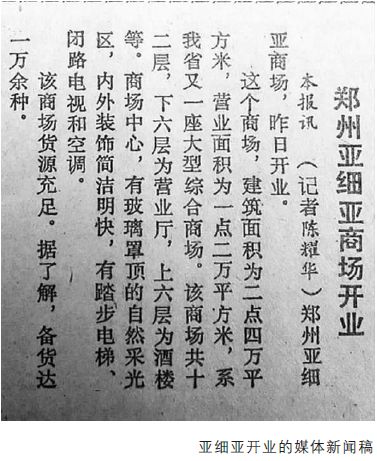 郑州亚细亚商场开业
本报讯 （记者陈耀华）郑州亚细
亚商场，昨日开业。
这个商场，建筑面积为二点四万平
方米，营业面积为一点二万平方米，系
我省又一座大型综合商场。该商场共十
二层，下六层为营业厅，上六层为酒楼
等。商场中心，有玻璃罩顶的自然采光
区，内外装饰简洁明快，有踏步电梯、
闭路电视和空调。
该商场货源充足。据了解，备货达
一万余种。
亚细亚开业的媒体新闻稿